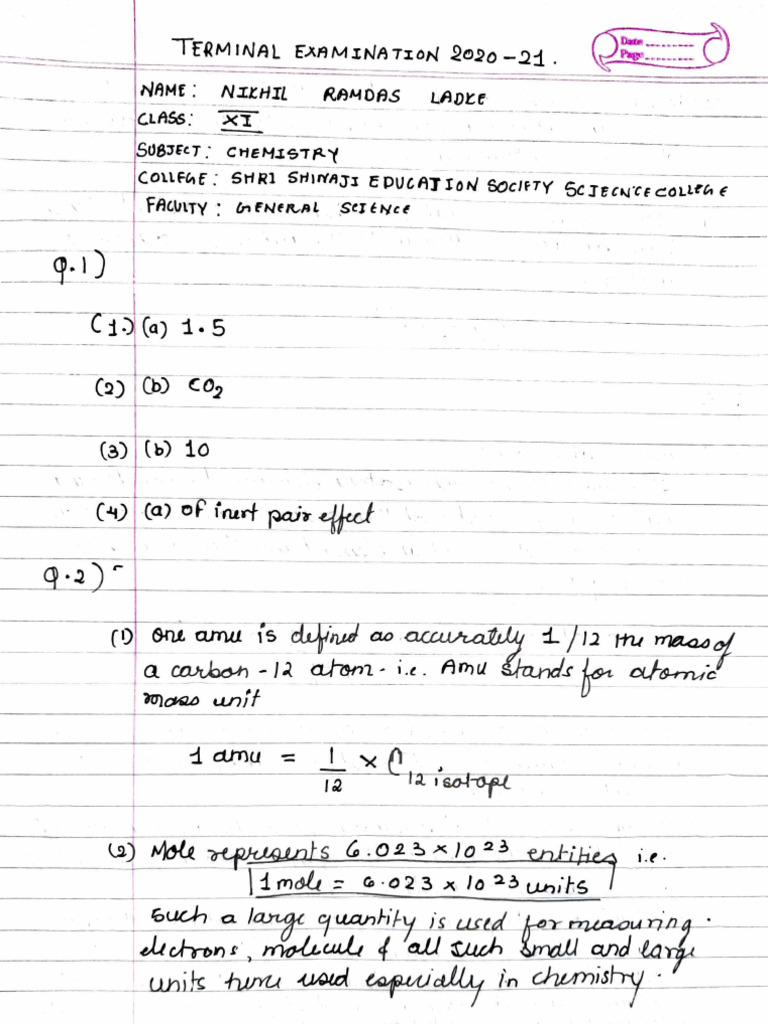 TERMINAL EXAMINATION 2020-21.
Date ..........
Page ..........
NAME: NIKHIL RAMDAS LADKE
CLASS: XI
SUBJECT: CHEMISTRY
COLLEGE: SHRI SHIVAJI EDUCATION SOCIETY SCIECNCE COLLEGE
FACULTY: GENERAL SCIENCE
Q.1)
(1.) (a) 1.5
(2) (b) CO2
(3) (b) 10
(4) (a) of inert pair effect
Q.2)
(1) One amu is defined as accurately 1/12 the mass of
a carbon-12 atom - i.e. Amu stands for atomic
mass unit
1 amu = 1/12 × C12 isotope
(2) Mole represents 6.023 × 10 23 entities i.e.
1 mole = 6.023 × 10 23 units
Such a large quantity is used for measuring
electrons, molecule & all such small and large
units used especially in chemistry.